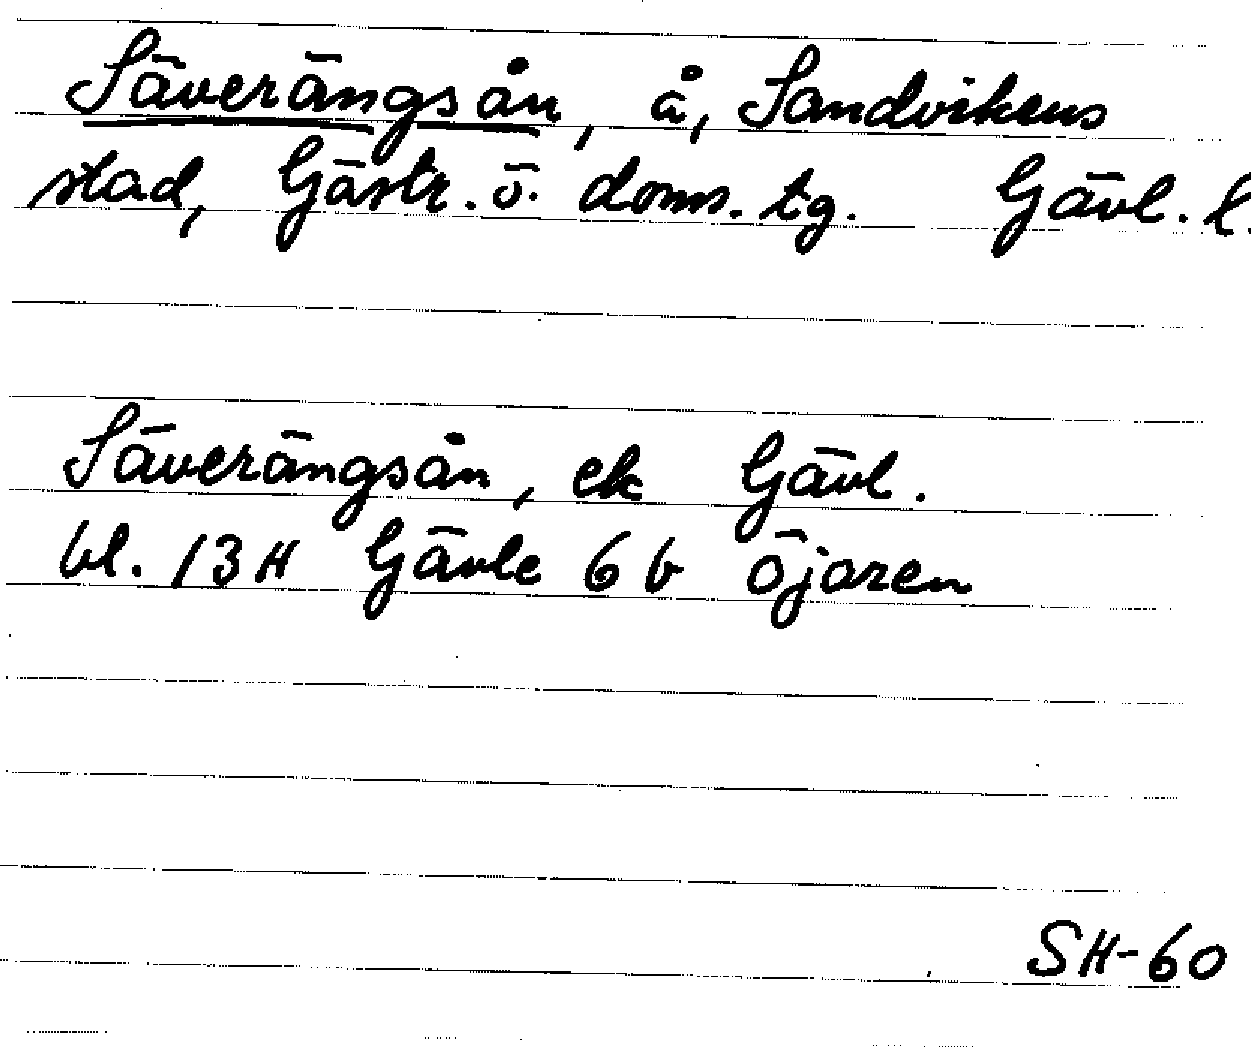 Säverängsån, å, Sandvikens
stad, Gästr. ö. doms. tg. Gävl. l.
Säverängsån, ek Gävl.
bl. 13H Gävle 6 b Öjaren
SH-60